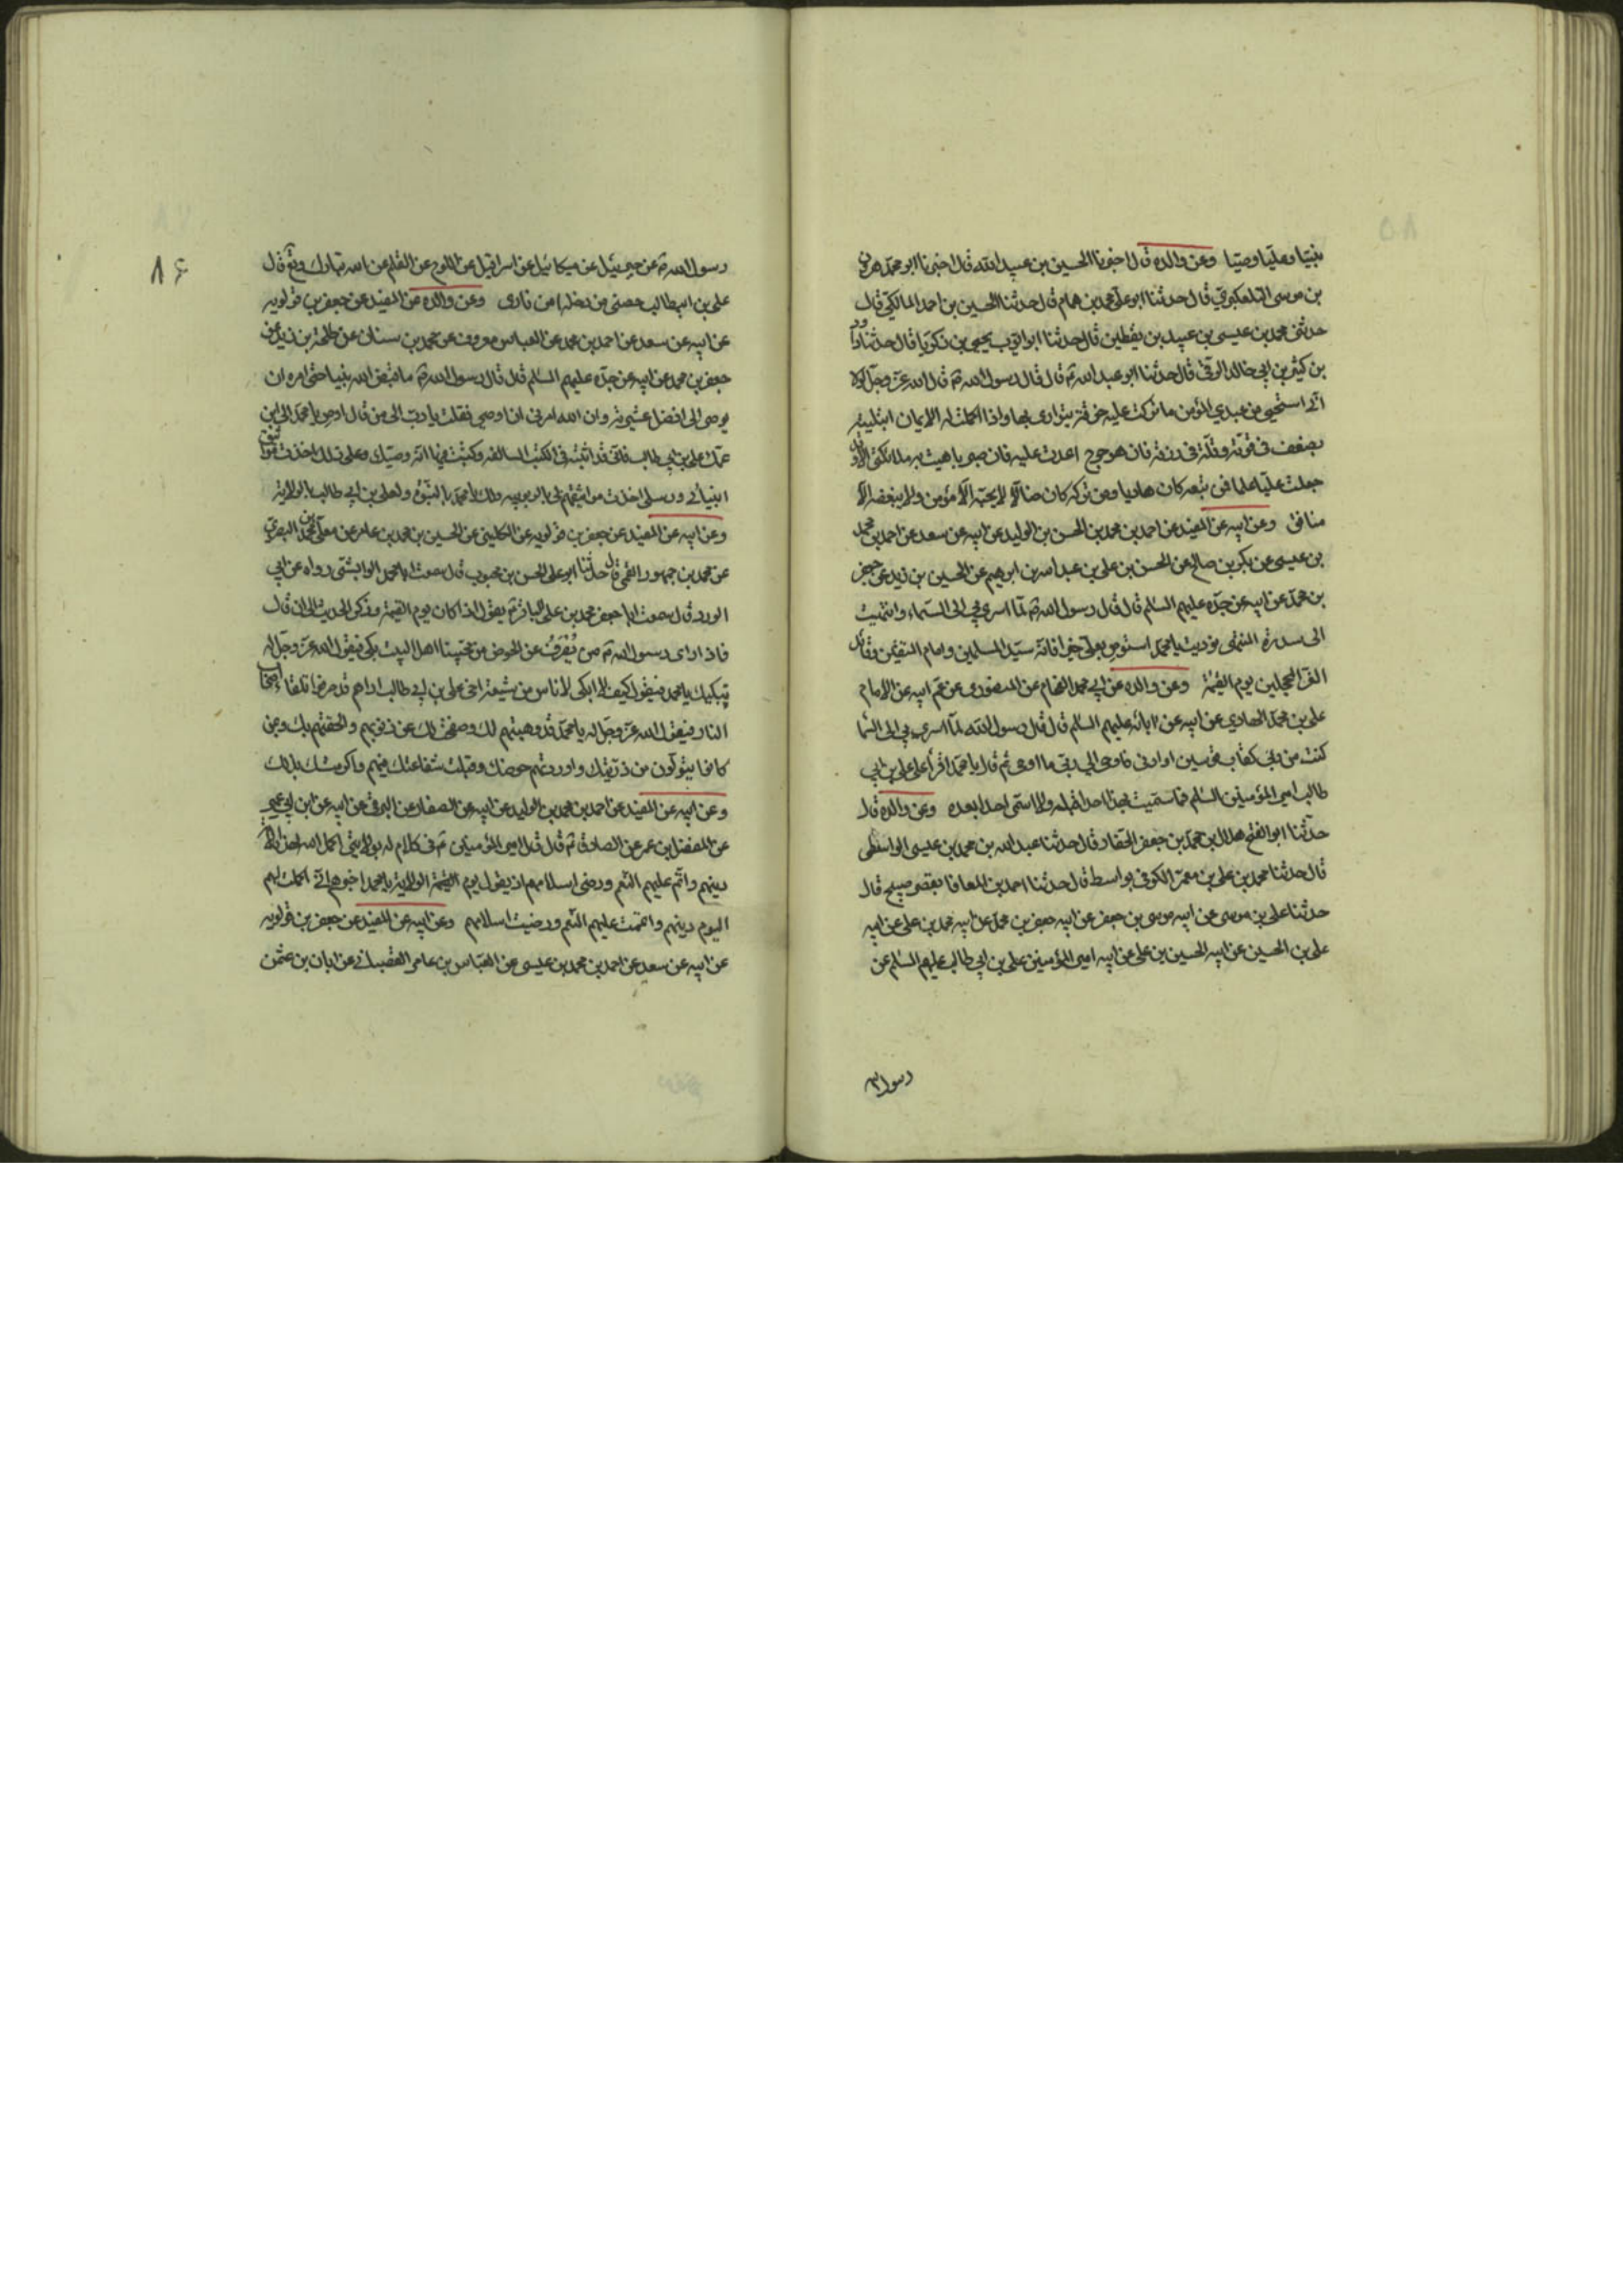 بنبيا وعليا وصيا وعن والده قال اخبرنا الحسين بن عبيد الله قال اخبرنا ابو محمد هرون
بن موسى التلعكبري قال حدثنا ابو علي محمد بن همام قال حدثنا الحسين بن احمد المالكي قال
حدثني محمد بن عيسى بن عبيد بن يقطين قال حدثنا يحيى بن زكريا قال حدثنا داود
بن كثير بن ابي خالد الرقي قال حدثنا ابو عبد الله ع قال قال رسول الله ص قال الله عز وجل لولا
اني استحيي من عبدي المؤمن ما تركت عليه خرقة يتوارى بها واذا اكملت له الايمان ابتليته
بضعف في قوته وقلة في رزقه فان هو حرج اعدت عليه فان صبر باهيت به ملائكتي الا وقد
جعلت عليا علما فمن تبعه كان هاديا ومن تركه كان ضالا لا يحبه الا مؤمن ولا يبغضه الا
منافق وعن ابيه عن المفيد عن احمد بن محمد بن الحسن بن الوليد عن ابيه عن سعد عن احمد بن محمد
بن عيسى عن بكر بن صالح عن الحسن بن علي عن عبد الله بن ابرهيم عن الحسين بن زيد عن جعفر
بن محمد عن ابيه عن جده عليهم السلام قال قال رسول الله ص لما اسري بي الى السماء وانتهيت
الى سدرة المنتهى نوديت يا محمد استوص بعلي خيرا فانه سيد المسلمين وامام المتقين وقائد
الغر المحجلين يوم القيمة وعن والده عن ابي محمد الفحام عن المنصوري عن عم ابيه عن الامام
علي بن محمد الهادي عن ابيه عن ابائه عليهم السلام قال قال رسول الله لما اسري بي الى السما
كنت من ربي كقاب قوسين او ادنى فاوحى الي ربي ما اوحى ثم قال يا محمد اقرأ على علي بن ابي
طالب امير المؤمنين السلام فما سميت بهذا احدا قبله ولا اسمي احدا بعده وعن والده قال
حدثنا ابو الفتح هلال بن محمد بن جعفر الحفار قال حدثنا عبد الله بن محمد بن عيسى الواسطي
قال حدثنا محمد بن علي بن معمر الكوفي بواسط قال حدثنا احمد بن المعافا بقصر صبيح قال
حدثنا علي بن موسى عن ابيه موسى بن جعفر عن ابيه جعفر بن محمد عن ابيه محمد بن علي عن ابيه
علي بن الحسين عن ابيه الحسين بن علي عن ابيه امير المؤمنين علي بن ابي طالب عليهم السلام عن
رسول الله
٨٦
رسول الله ص عن جبرئيل عن ميكائيل عن اسرافيل عن اللوح عن القلم عن الله تبارك وتع قال
علي بن ابيطالب حصني من دخله امن ناري وعن والده عن المفيد عن جعفر بن قولويه
عن ابيه عن سعد عن احمد بن محمد عن العباس معروف عن محمد بن سنان عن طلحة بن زيد عن
جعفر بن محمد عن ابيه عن جده عليهم السلام قال قال رسول الله ص ما قبض الله نبيا حتى امره ان
يوصي الى افضل عشيرته وان الله امرني ان اوصي فقلت يا رب الى من قال اوص يا محمد الى ابن
عمك علي بن ابي طالب فاني قد اثبته في الكتب السالفه وكتبت فيها انه وصيك وعلى ذلك اخذت مواثيق
انبيائي ورسلي اخذت مواثيقهم لي بالربوبيه ولك يا محمد بالنبوة ولعلي بن ابي طالب بالولاية
وعن ابيه عن المفيد عن جعفر بن قولويه عن الكليني عن الحسين بن محمد بن عامر عن معلى بن محمد البصري
عن محمد بن جمهور القمي قال حدثنا ابو علي الحسن بن محبوب قال سمعت ابا محمد الوابشي رواه عن ابي
الورد قال سمعت ابا جعفر محمد بن علي الباقر ع يقول اذا كان يوم القيمة وذكر الحديث الى ان قال
فاذا راى رسول الله ص من يصرف عن الحوض من محبينا اهل البيت بكى فيقول الله عز وجل له
يبكيك يا محمد فيقول كيف لا ابكي لاناس من شيعة اخي علي بن ابي طالب اراهم قد صرفوا تلقاء اصحاب
النار فيقول الله عز وجل له يا محمد قد وهبتهم لك وصفحت لك عن ذنوبهم والحقتهم بك وبمن
كانوا يتولون من ذريتك واوردتهم حوضك وقبلت شفاعتك فيهم واكرمتك بذلك
وعن ابيه عن المفيد عن احمد بن محمد بن الوليد عن ابيه عن الصفار عن البرقي عن ابيه عن ابن ابي عمير
عن المفضل بن عمر عن الصادق ع قال قال امير المؤمنين ع في كلام له بولايتي اكمل الله لهذه الامة
دينهم واتم عليهم النعم ورضي اسلامهم اذ يقول يوم الولاية يا محمد اخبرهم اني اكملت لهم
اليوم دينهم واتممت عليهم النعم ورضيت اسلامهم وعن ابيه عن المفيد عن جعفر بن قولويه
عن ابيه عن سعد عن احمد بن محمد بن عيسى عن العباس بن عامر القصباني عن ابان بن عثمن